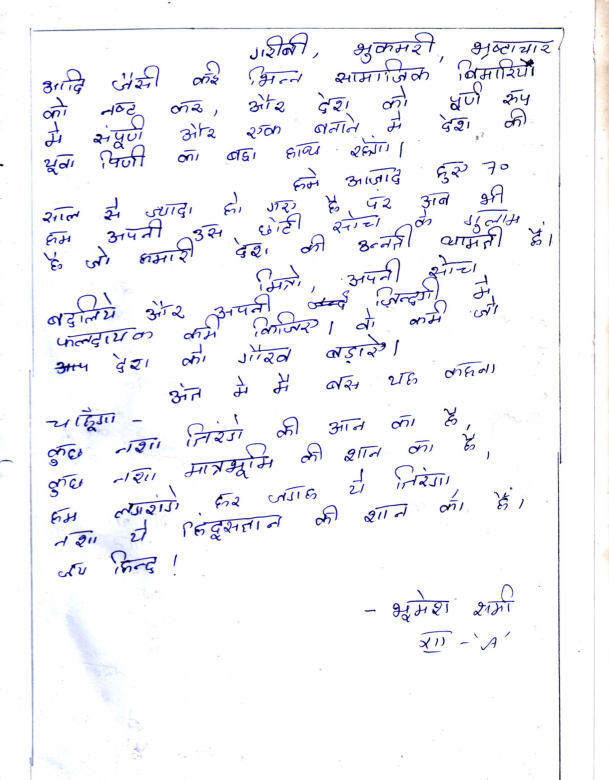 गरीबी, भुकमरी, भ्रष्टाचार
आदि जैसी कई भिन्न सामाजिक बिमारियों
को नष्ट कर, और देश को पूर्ण रूप
मे संपूर्ण और एक बनाने मे देश की
यूवा पिणी का बडा हाथ रहेगा।
हमे आज़ाद हुए 70
साल से ज्यादा हो गए है पर अब भी
हम अपनी उस छोटी सोच के गुलाम
है जो हमारी देश की उन्नती थामती है।
मित्रो, अपनी सोच
बदलिये और अपनी ज़िन्दगी मे
फलदायक कर्म किजिए। वो कर्म जो
देश का गौरव बड़ाऐ।
अंत मे मै बस यह कहना
चाहूँगा -
कुछ नशा तिरंगे की आन का है,
कुछ नशा मात्रभूमि की शान का है,
हम लहराएंगे हर जगह ये तिरंगा
नशा ये हिंदूस्तान की शान का है।
जय हिन्द !
- भूमेश शर्मा
XII - 'A'